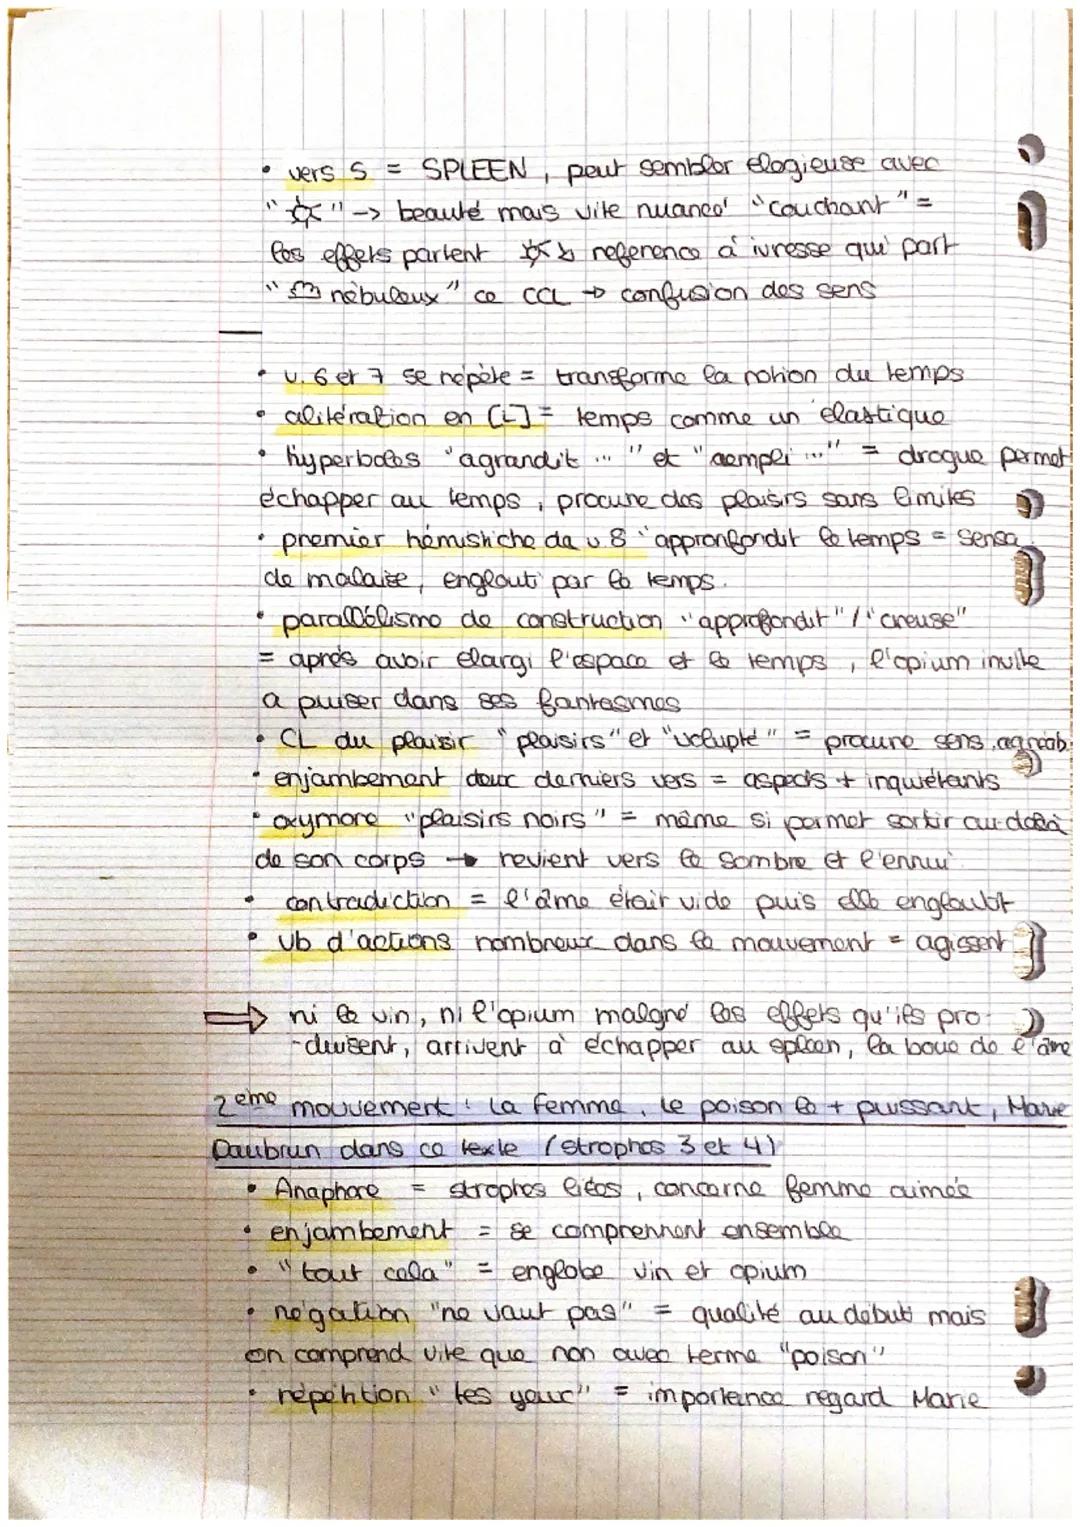 • vers 5 = SPLEEN, peut sembler élogieuse avec
"☼" -> beauté mais vite nuancé "couchant" =
les effets partent ☼↘ reference à ivresse qui part
"☁ nébuleux" ce CCL → confusion des sens
• v. 6 et 7 se répète = transforme la notion du temps
• alitération en [L] = temps comme un élastique
• hyperboles "agrandit ..." et "rempli ..." = drogue permet
échapper au temps, procure des plaisirs sans limites
• premier hémistiche du v.8 "appronfondit le temps = sensa
de malaise, englouti par le temps.
• parallélisme de construction "approfondit" / "creuse"
= après avoir élargi l'espace et le temps, l'opium invite
a puiser dans ses fantasmes
• CL du plaisir "plaisirs" et "volupté" = procure sens.agréab
• enjambement deux derniers vers = aspects + inquiétants
• oxymore "plaisirs noirs" = même si permet sortir au-delà
de son corps → revient vers le sombre et l'ennui
• contradiction = l'âme était vide puis elle engloutit
• vb d'actions nombreux dans le mouvement = agissent
⇒ ni le vin, ni l'opium malgré les effets qu'ils pro-
-duisent, arrivent à échapper au spleen, la boue de l'âme
2ème mouvement : La femme, le poison le + puissant, Marie
Daubrun dans ce texte (strophes 3 et 4)
• Anaphore = strophes liées, concerne femme aimée
• enjambement = se comprennent ensemble
• "tout cela" = englobe vin et opium
• négation "ne vaut pas" = qualité au début mais
on comprend vite que non avec terme "poison"
• répétition "tes yeux" = importance regard Marie